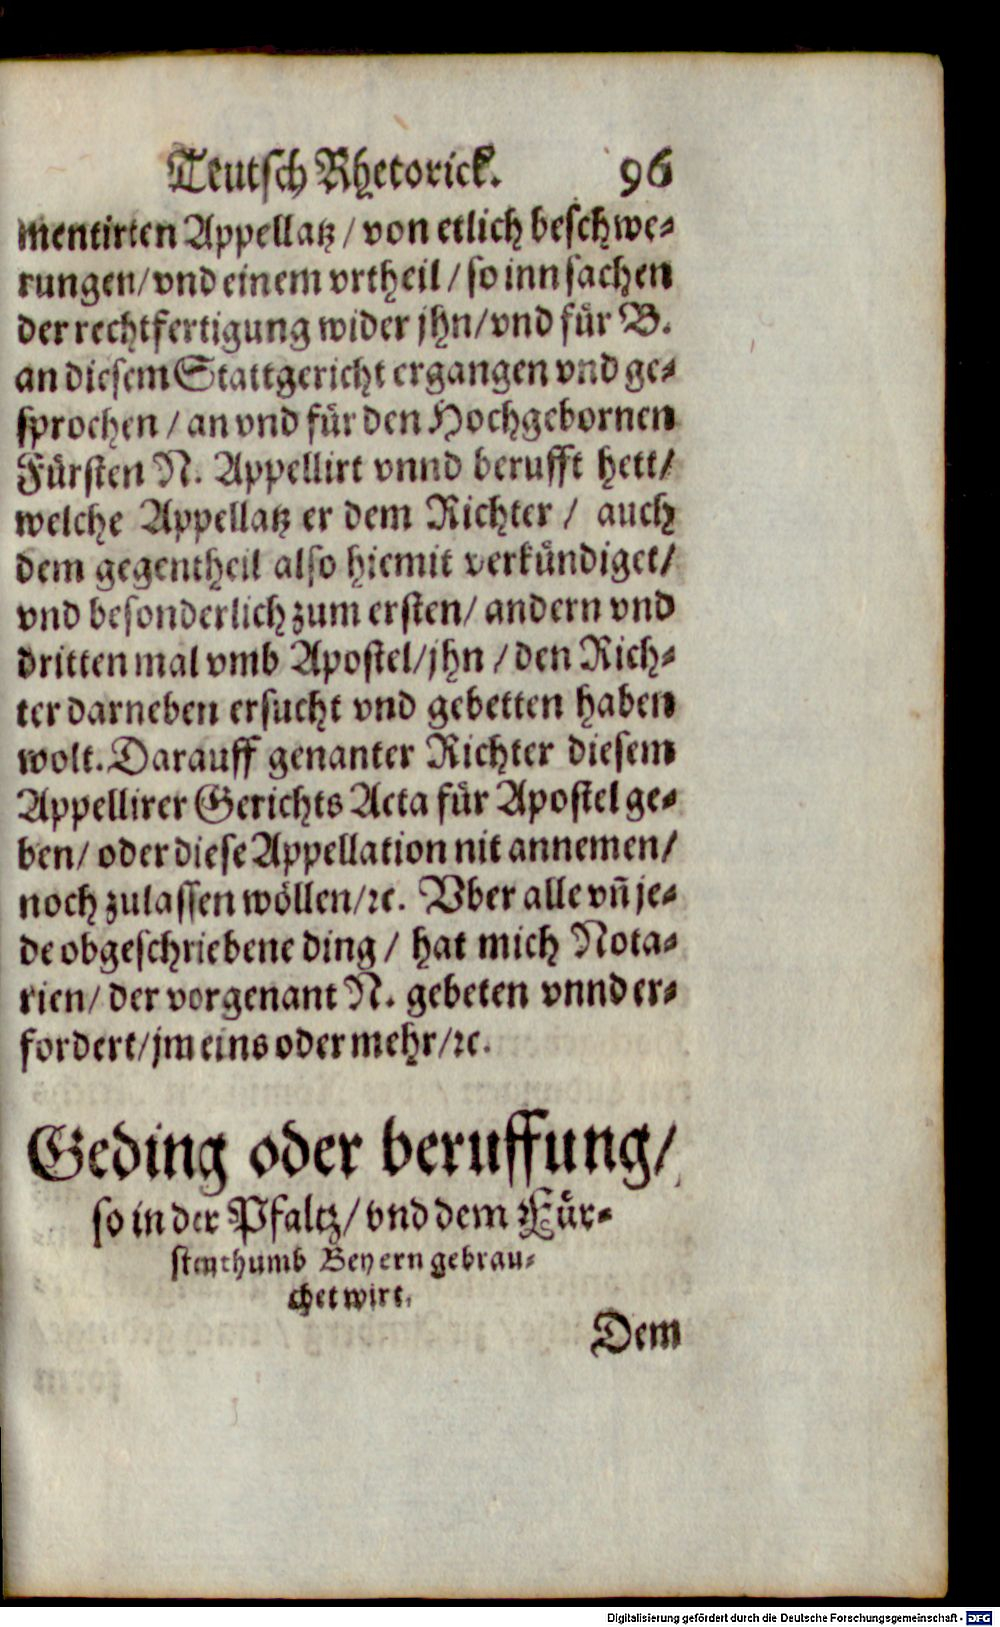 Teutsch Rhetorick. 96
mentirten Appellatz / von etlich beschwe-
rungen / vnd einem vrtheil / so inn sachen
der rechtfertigung wider jhn / vnd für B.
an diesem Stattgericht ergangen vnd ge-
sprochen / an vnd für den Hochgebornen
Fürsten N. Appellirt vnnd berufft hett /
welche Appellatz er dem Richter / auch
dem gegentheil also hiemit verkündiget /
vnd besonderlich zum ersten / andern vnd
dritten mal vmb Apostel / jhn / den Rich-
ter darneben ersucht vnd gebetten haben
wolt. Darauff genanter Richter diesem
Appellirer Gerichts Acta für Apostel ge-
ben / oder diese Appellation nit annemen /
noch zulassen wöllen / ꝛc. Vber alle vñ je-
de obgeschriebene ding / hat mich Nota-
rien / der vorgenant N. gebeten vnnd er-
fordert / jm eins oder mehr / ꝛc.
Geding oder beruffung /
so in der Pfaltz / vnd dem Für-
stenthumb Beyern gebrau-
chet wirt.
Dem
Digitalisierung gefördert durch die Deutsche Forschungsgemeinschaft - DFG